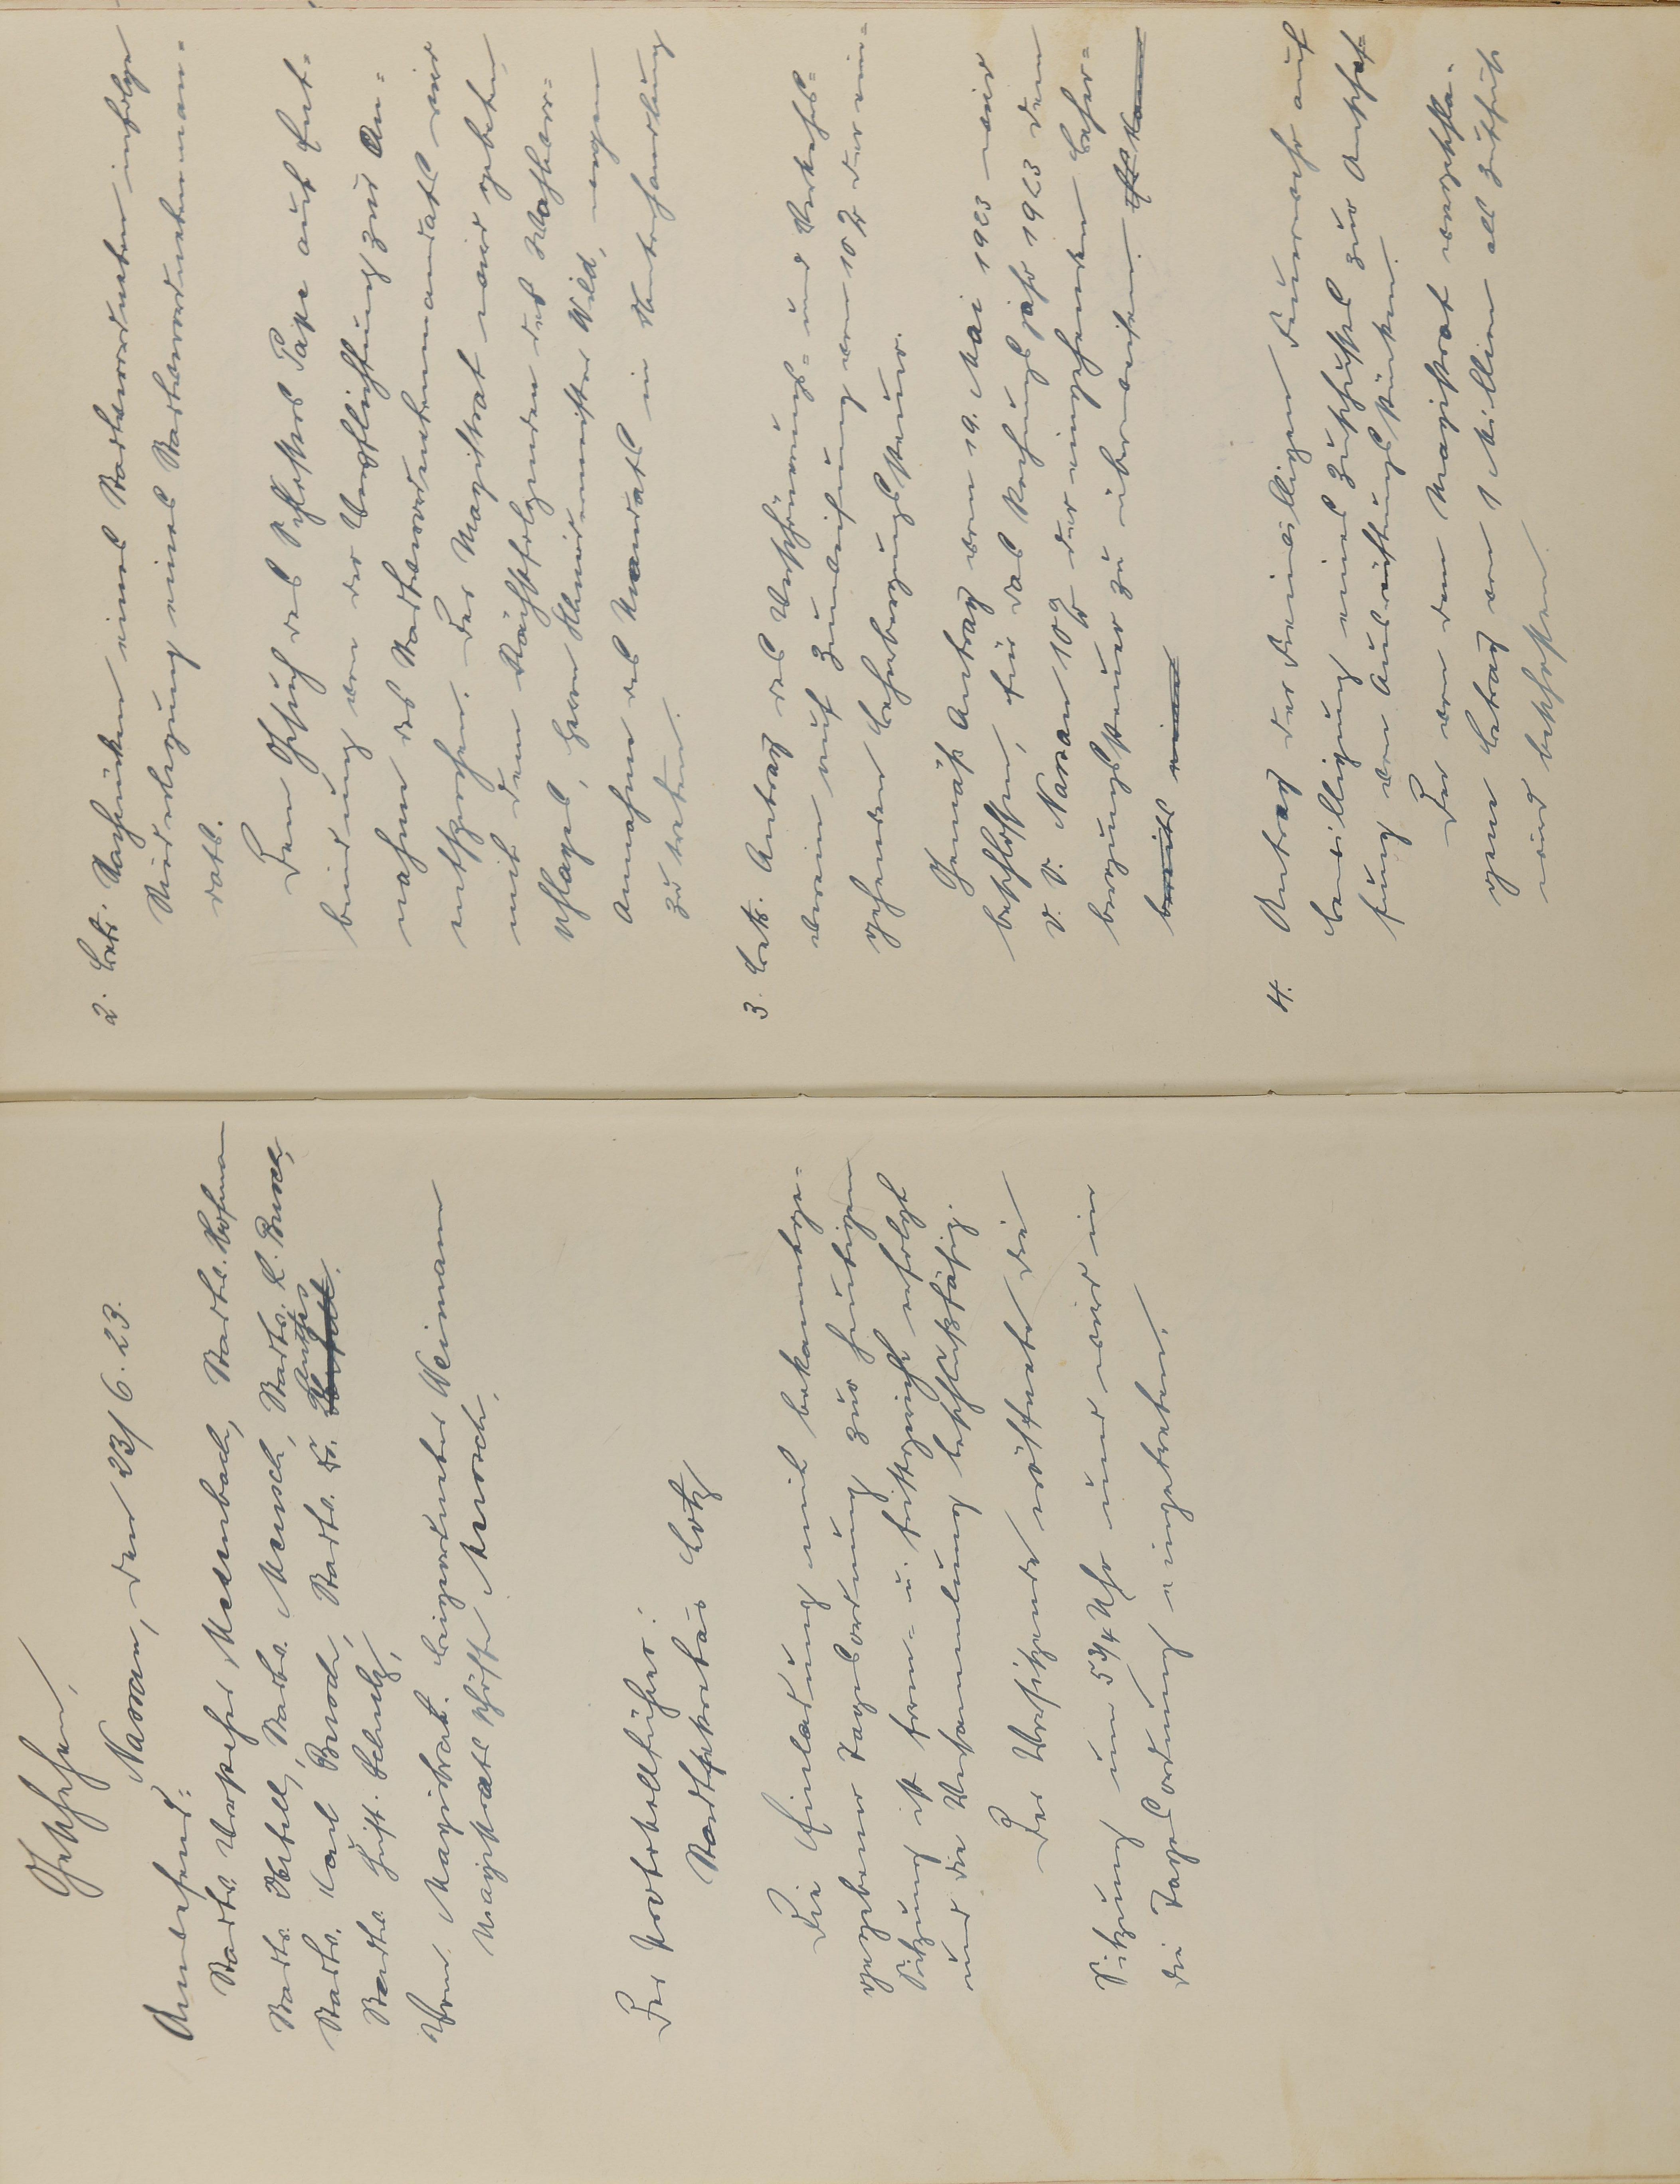 Geschehen,
Nassau, den 23/6. 23.
Anwesend:
Stadtv. Vorsteher Medenbach, Stadtv. Hofmann
Stadtv. Ortseifen, Stadtv. Mensch, Stadtv. K. Busch,
Stadtv. Karl Busch, Stadtv. Dr.
Stadtv. Just. Schulz,
Vom Magistrat. Beigeordneter Weimann
Magistratsschöffe Mensch,
Der Protokollführer:
Stadtsekretär Lotz
Die Einladung mit bekanntge-
gebener Tagesordnung zur heutigen
Sitzung ist form- u. fristgerecht erfolgt
und die Versammlung beschlußfähig.
Der Vorsitzende eröffnet die
Sitzung um 5 3/4 Uhr und wird in
die Tagesordnung eingetreten.
2. Betr. Nachrücken eines Stadtverordneten infolge
Niederlegung eines Stadtverordnetenman-
dats.
Dem Gesuch des Schlossers Pape auf Ent-
bindung von der Verpflichtung zur An-
nahme des Stadtverordnetenmandats wird
entsprochen. Der Magistrat wird gebeten,
mit dem Nächstfolgenden des Wahlvor-
schlages, Herrn Schneidermeister Wild, wegen
Annahme des Mandats in Unterhandlung
zu treten.
3. Betr. Antrag des Verschönerungs- und Verkehrs-
verein auf Zuweisung von 10 % der ein-
gehenden Beherbergungssteuer.
Gemäß Antrag vom 19. Mai 1923 wird
beschlossen, für das Rechnungsjahr 1923 dem
V. V. Nassau 10 % der eingehenden Beher-
bergungssteuer zu überweisen.
bereits eine
4. Antrag der Freiwilligen Feuerwehr auf
Bewilligung eines Zuschusses zur Anschaf-
fung von Ausrüstungsstücken.
Der von dem Magistrat vorgeschla-
gene Betrag von 1 Million als Zuschuß
wird beschlossen